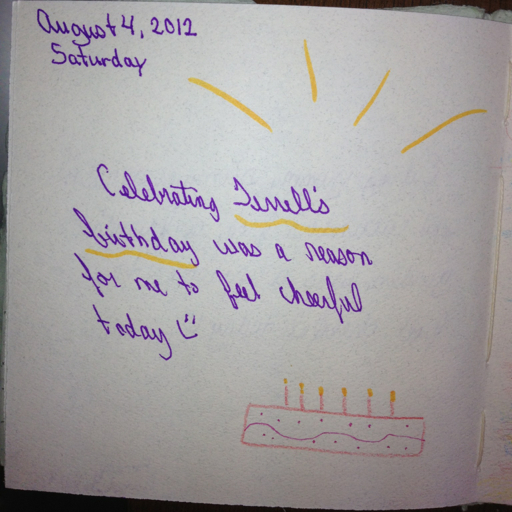 August 4, 2012
Saturday
Celebrating Terrell's
birthday was a reason
for me to feel cheerful
today